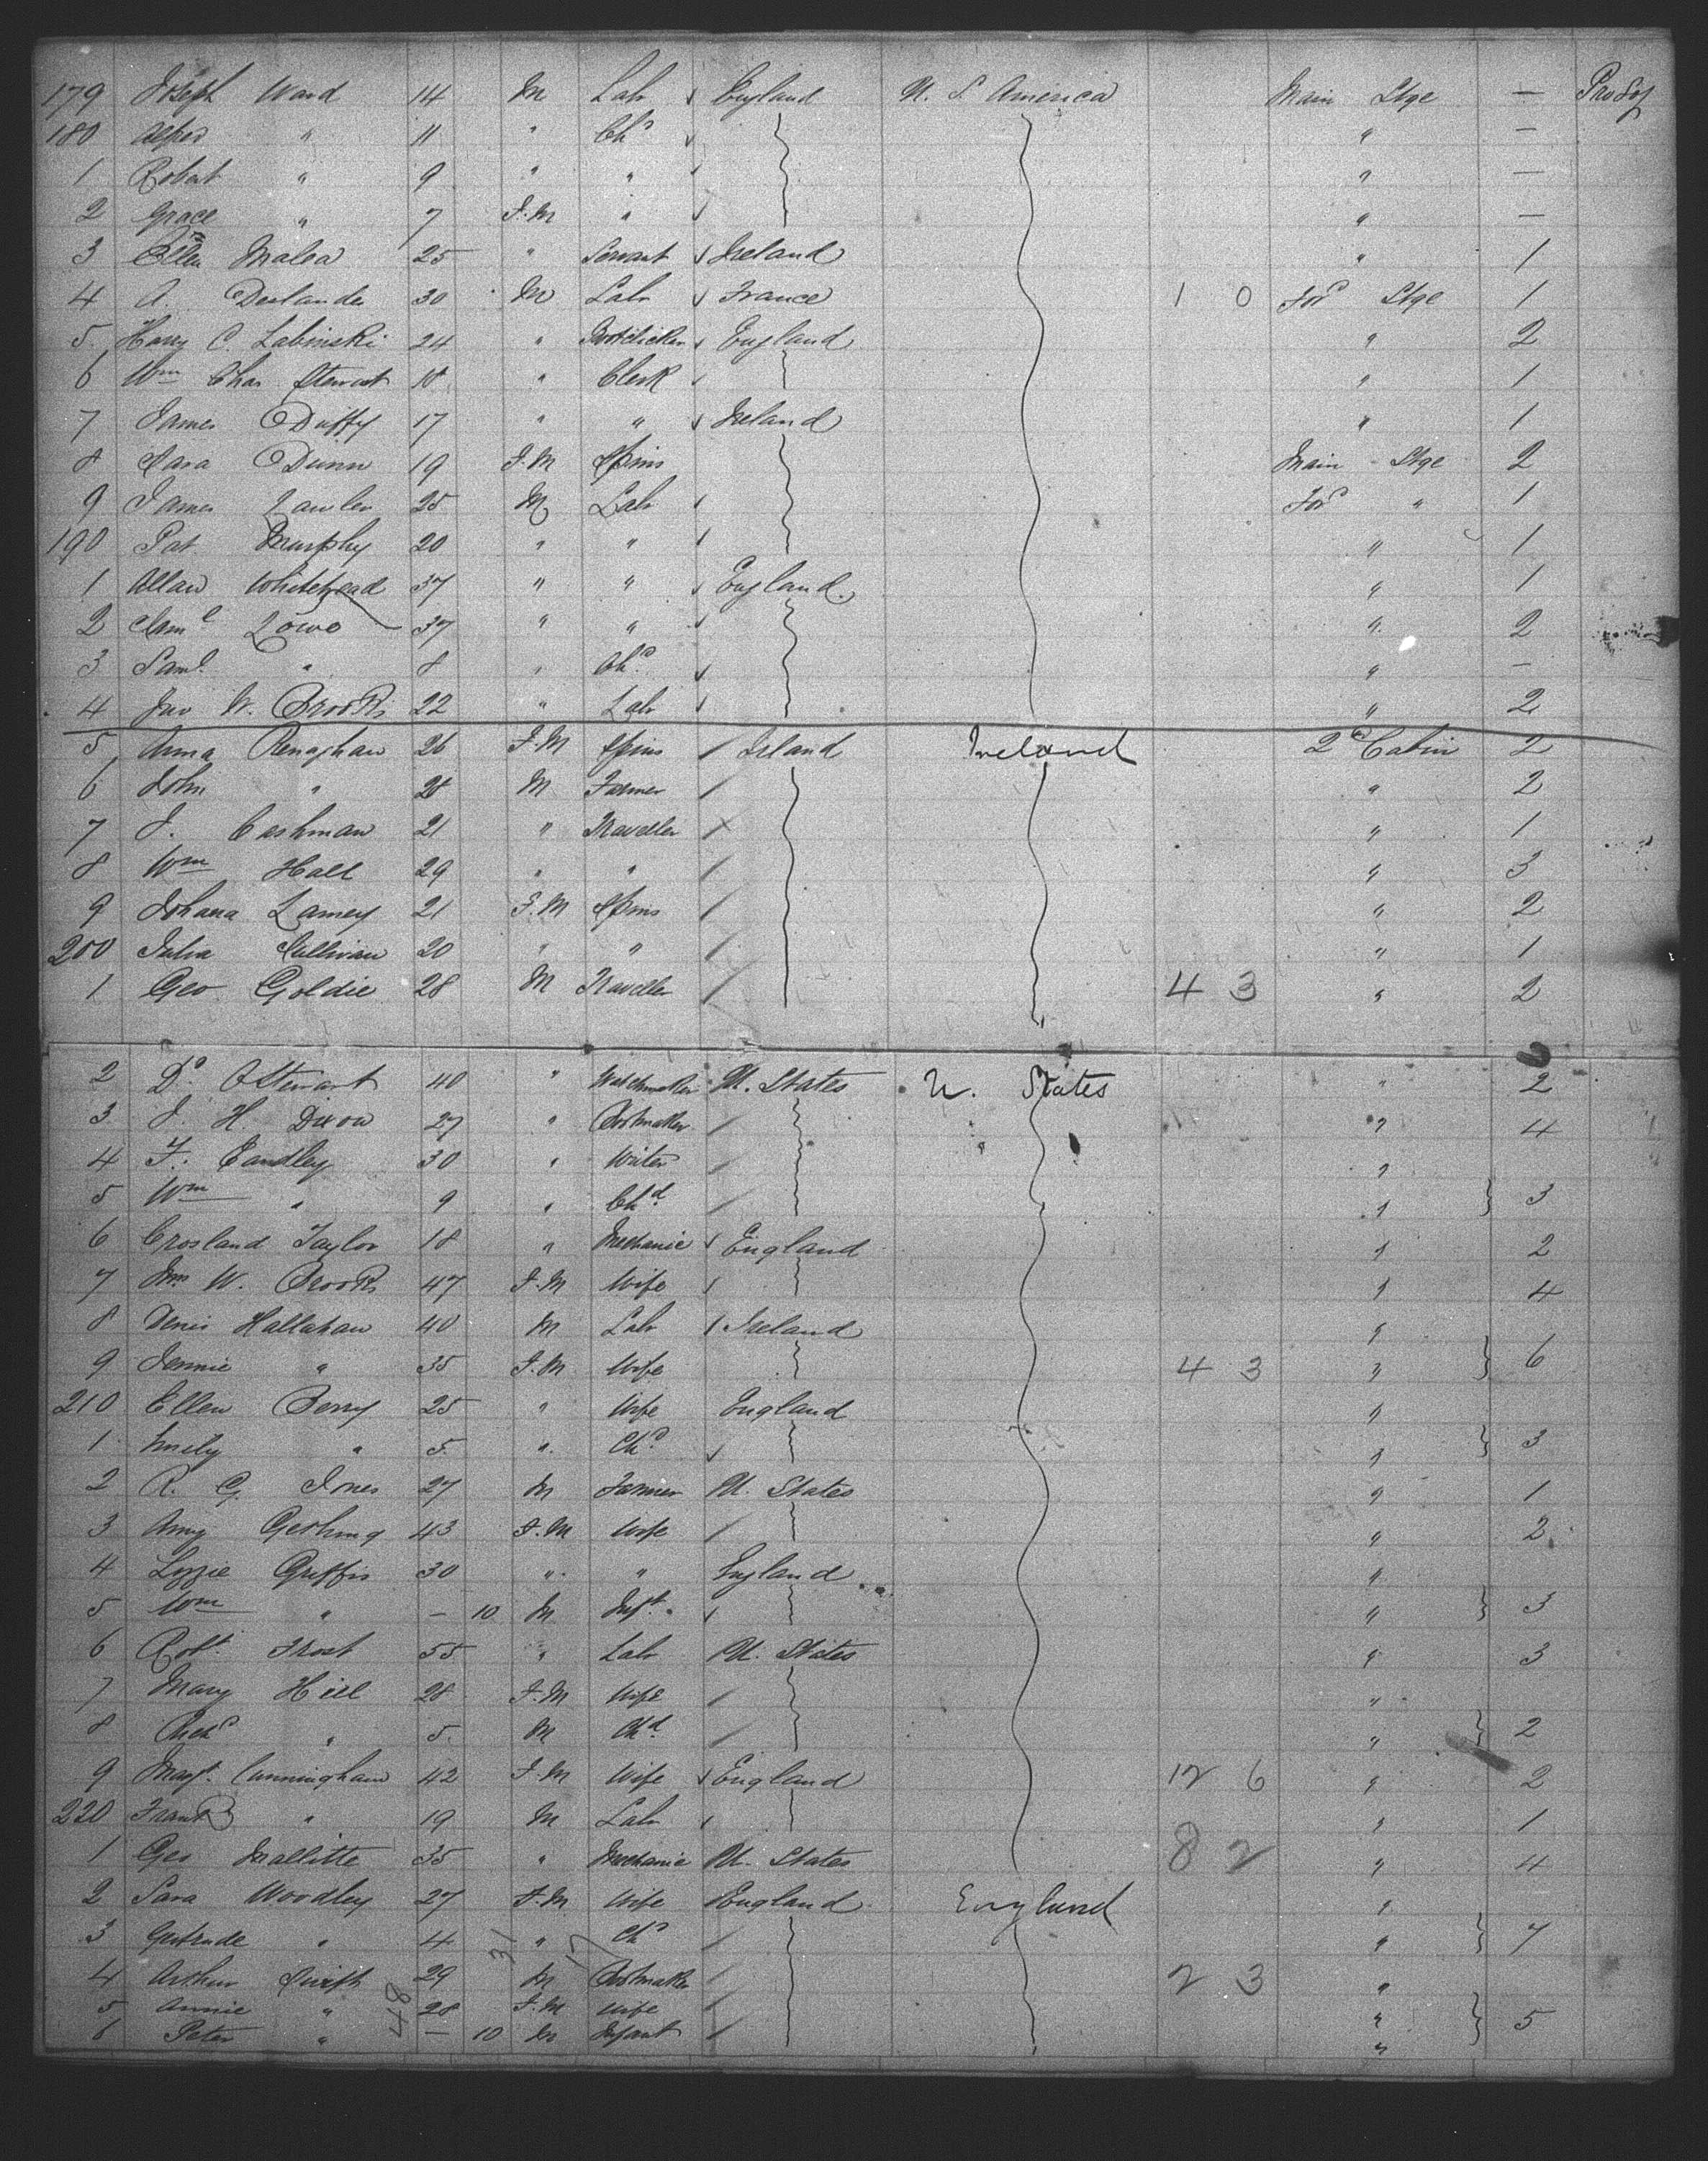 179 Joseph Ward 14 M Lab England U. S. America Main Stge — Pro Soj
180 Alfred " 11 " Chd " —
1 Robert " 9 " " " —
2 Grace " 7 F.M " " —
3 Ellen Malea 25 " Servant Ireland " 1
4 A. Deslandes 30 M Lab France 1 0 For Stge 1
5 Harry C. Labinski 24 " England " 2
6 Wm Chas Stewart 18 " Clerk " 1
7 James Duffy 17 " " Ireland " 1
8 Sara Dunn 19 F.M Spins Main Stge 2
9 James Lawler 25 M Lab For " 1
190 Pat Murphy 20 " " " 1
1 Allan Whitehead 37 " " England " 1
2 Saml Lowe 37 " " " 2
3 Saml " 8 " Chd " —
4 Jno W. Brooks 22 " Lab " 2
5 Anna Renaghan 26 F.M Spins Irland Ireland 2d Cabin 2
6 John " 28 M Farmer " 2
7 J. Cashman 21 " Traveller " 1
8 Wm Hall 29 " " " 3
9 Johana Lamey 21 F.M Spins " 2
200 Julia Sullivan 20 " " " 1
1 Geo Goldie 28 M Traveller 4 3 " 2
2 Dd Stewart 40 " Watchmaker U. States U. States " 2
3 J. H. Dixon 27 " Bootmaker " " 4
4 F. Eandley 30 " Writer "
5 Wm " 9 " Chd " 3
6 Crosland Taylor 18 " Mechanic England " 2
7 Mrs W. Brooks 47 F.M Wife " 4
8 Denis Hallahan 40 M Lab Ireland "
9 Jennie " 35 F.M Wife 4 3 " 6
210 Ellen Berry 25 " Wife England "
1 Emily " 5 " Chd " 3
2 R. G. Jones 27 M Farmer U. States " 1
3 Amy Gething 43 F.M Wife " 2
4 Lizzie Griffis 30 " " England "
5 Wm " — 10 M Inft " 3
6 Robt Frost 55 " Lab U. States " 3
7 Mary Hill 28 F.M Wife "
8 Richd " 5 M Chd " 2
9 Margt Cunningham 42 F.M Wife England 12 6 " 2
220 Frank " 19 M Lab " 1
1 Geo Mallitte 35 " Mechanic U. States 8 2 " 4
2 Sara Woodley 27 F.M Wife England England "
3 Gertrude " 4 31 " Chd 17 " 7
4 Arthur Smith 29 M Bootmaker 2 3 "
5 Annie " 48 28 F.M Wife " 5
6 Peter " — 10 M Infant "